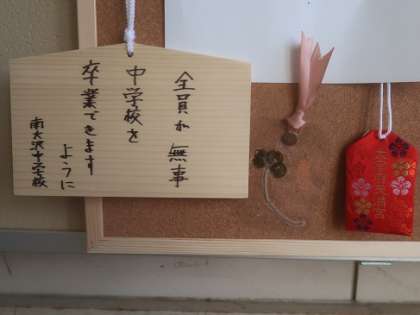 全員が無事
中学校を
卒業できます
ように
南大沢中学校